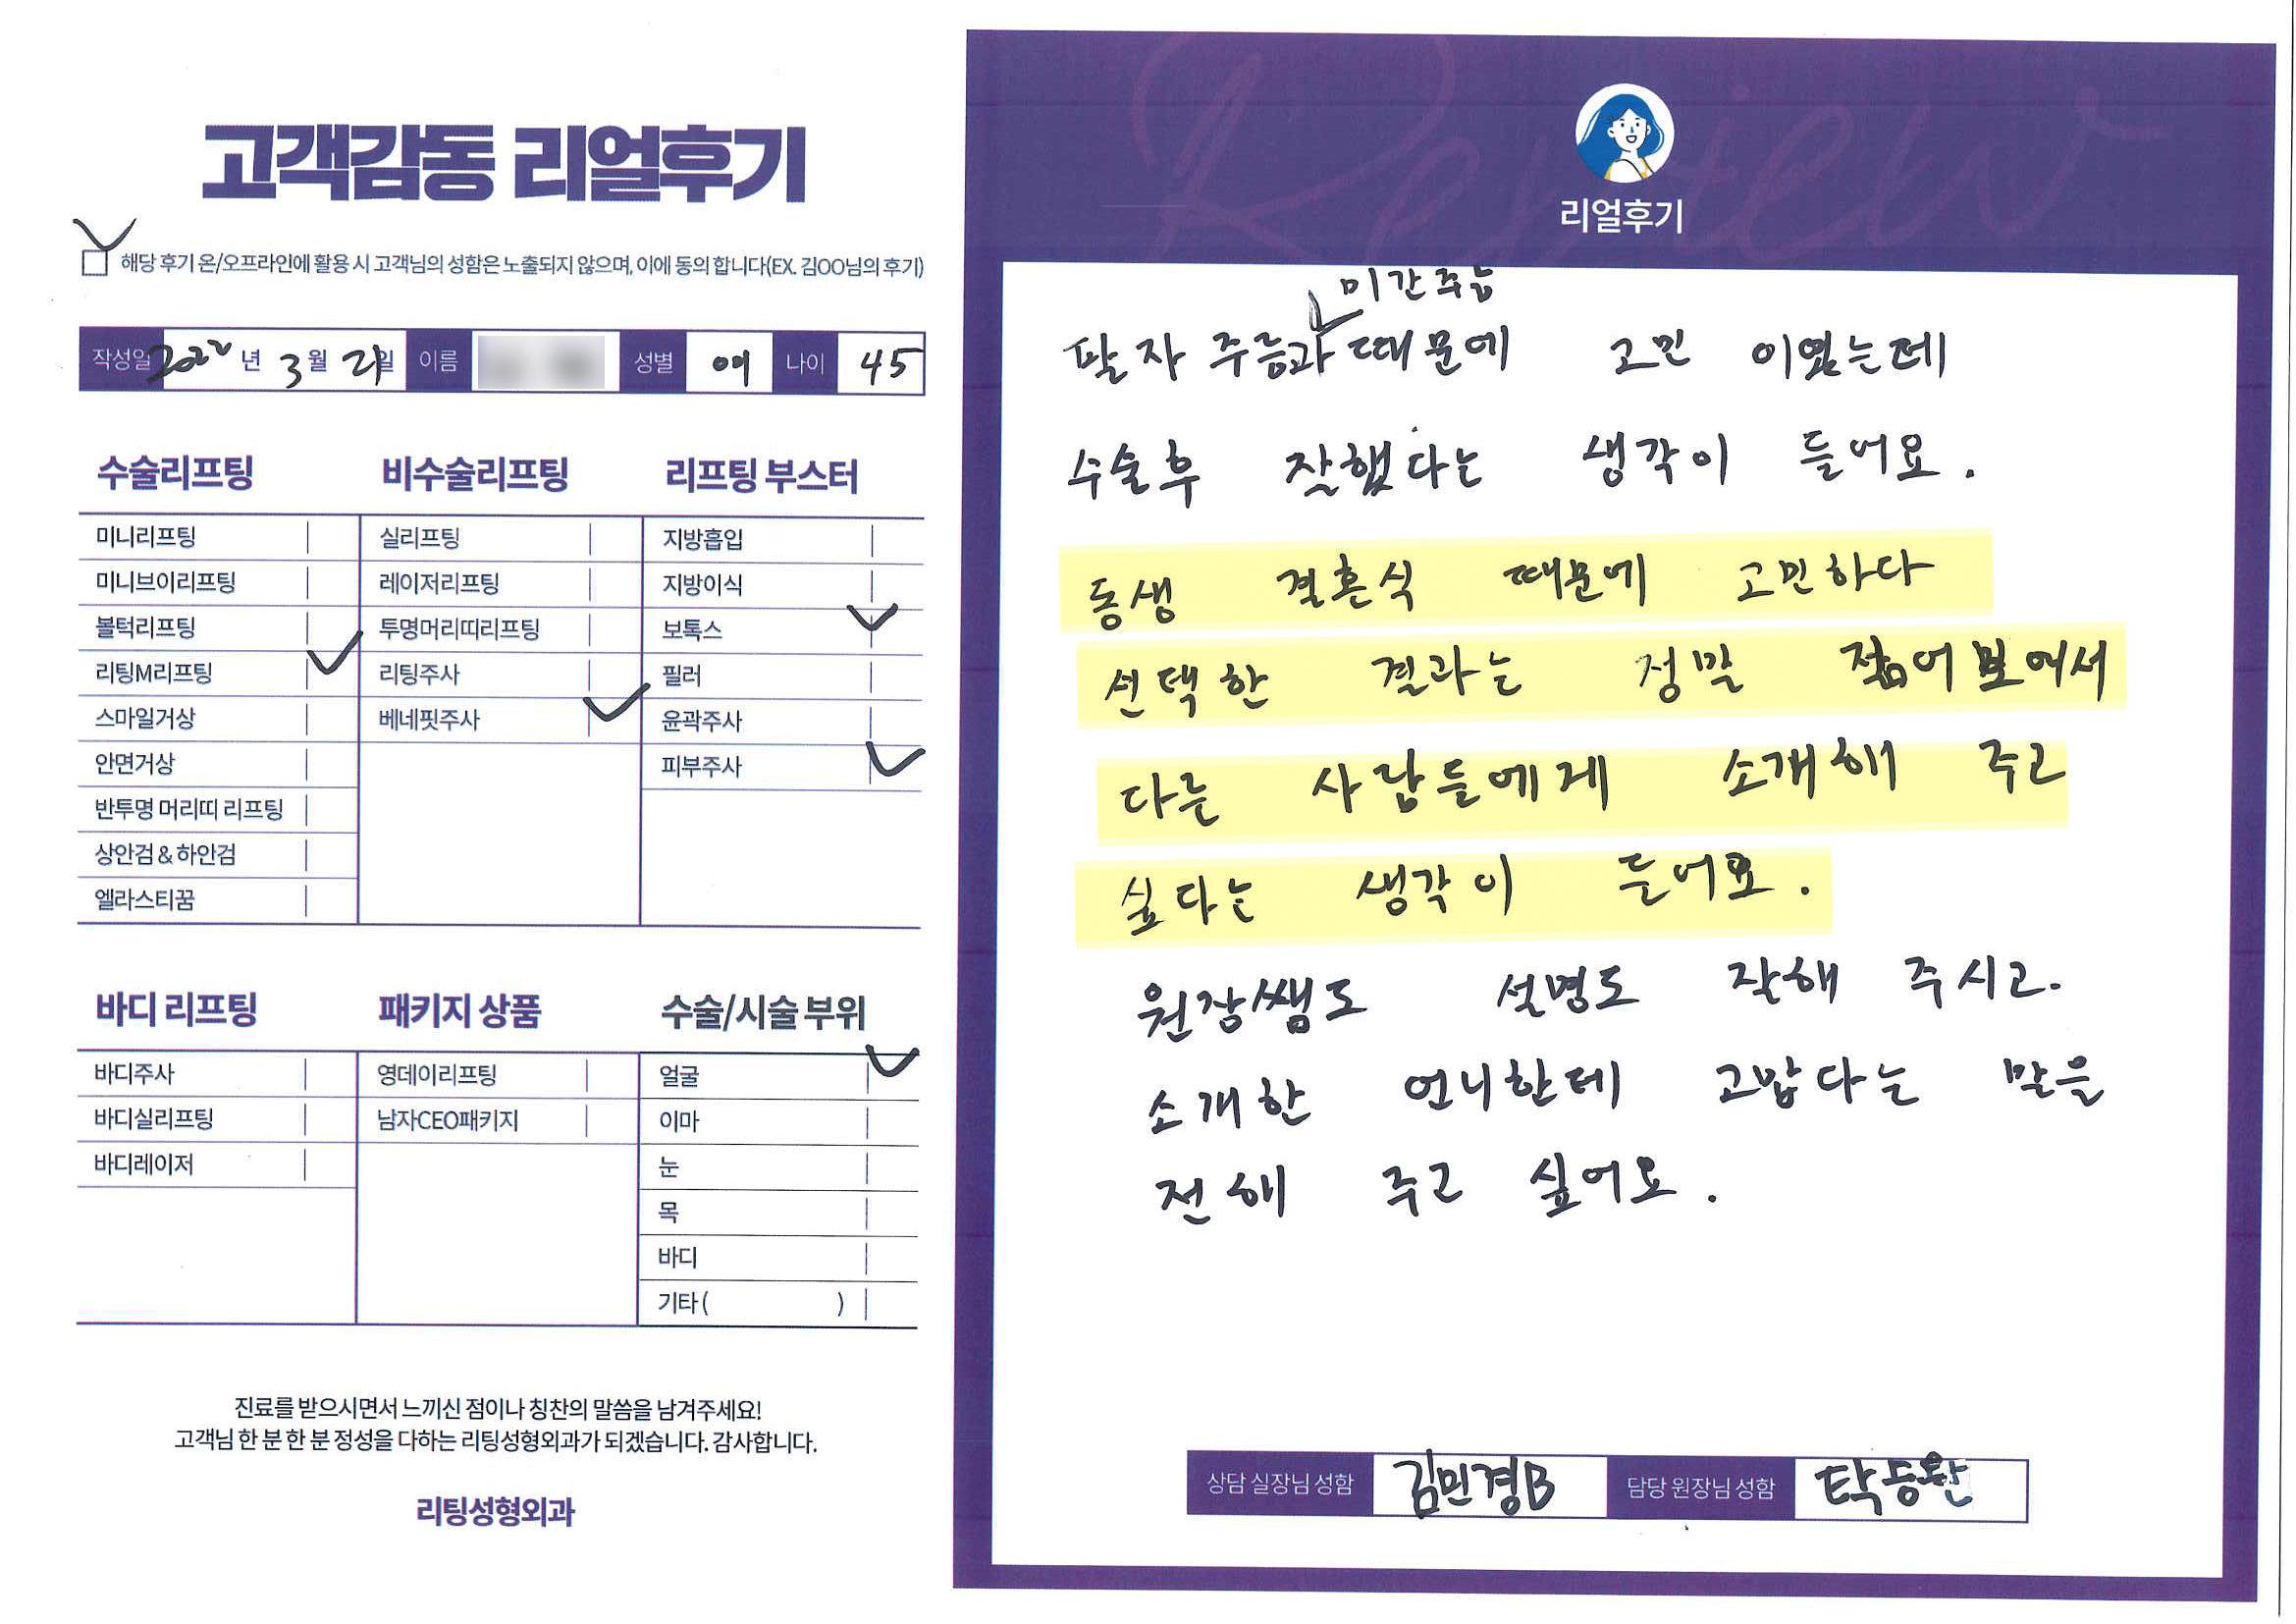 고객감동 리얼후기
해당 후기 온/오프라인에 활용 시 고객님의 성함은 노출되지 않으며, 이에 동의 합니다(EX. 김OO님의 후기)
작성일 2022년 3월 21일 이름 성별 여 나이 45
수술리프팅
미니리프팅
미니브이리프팅
볼턱리프팅
리팅M리프팅
스마일거상
안면거상
반투명 머리띠 리프팅
상안검 & 하안검
엘라스티꿈
비수술리프팅
실리프팅
레이저리프팅
투명머리띠리프팅
리팅주사
베네핏주사
리프팅 부스터
지방흡입
지방이식
보톡스
필러
윤곽주사
피부주사
바디 리프팅
바디주사
바디실리프팅
바디레이저
패키지 상품
영데이리프팅
남자CEO패키지
수술/시술 부위
얼굴
이마
눈
목
바디
기타 ( )
진료를 받으시면서 느끼신 점이나 칭찬의 말씀을 남겨주세요!
고객님 한 분 한 분 정성을 다하는 리팅성형외과가 되겠습니다. 감사합니다.
리팅성형외과
Review
리얼후기
미간주름
팔자 주름과 때문에 고민 이였는데
수술후 잘했다는 생각이 들어요.
동생 결혼식 때문에 고민하다
선택한 결과는 정말 젊어보여서
다른 사람들에게 소개해 주고
싶다는 생각이 들어요.
원장쌤도 설명도 잘해 주시고.
소개한 언니한테 고맙다는 말을
전해 주고 싶어요.
상담 실장님 성함 김민경B 담당 원장님 성함